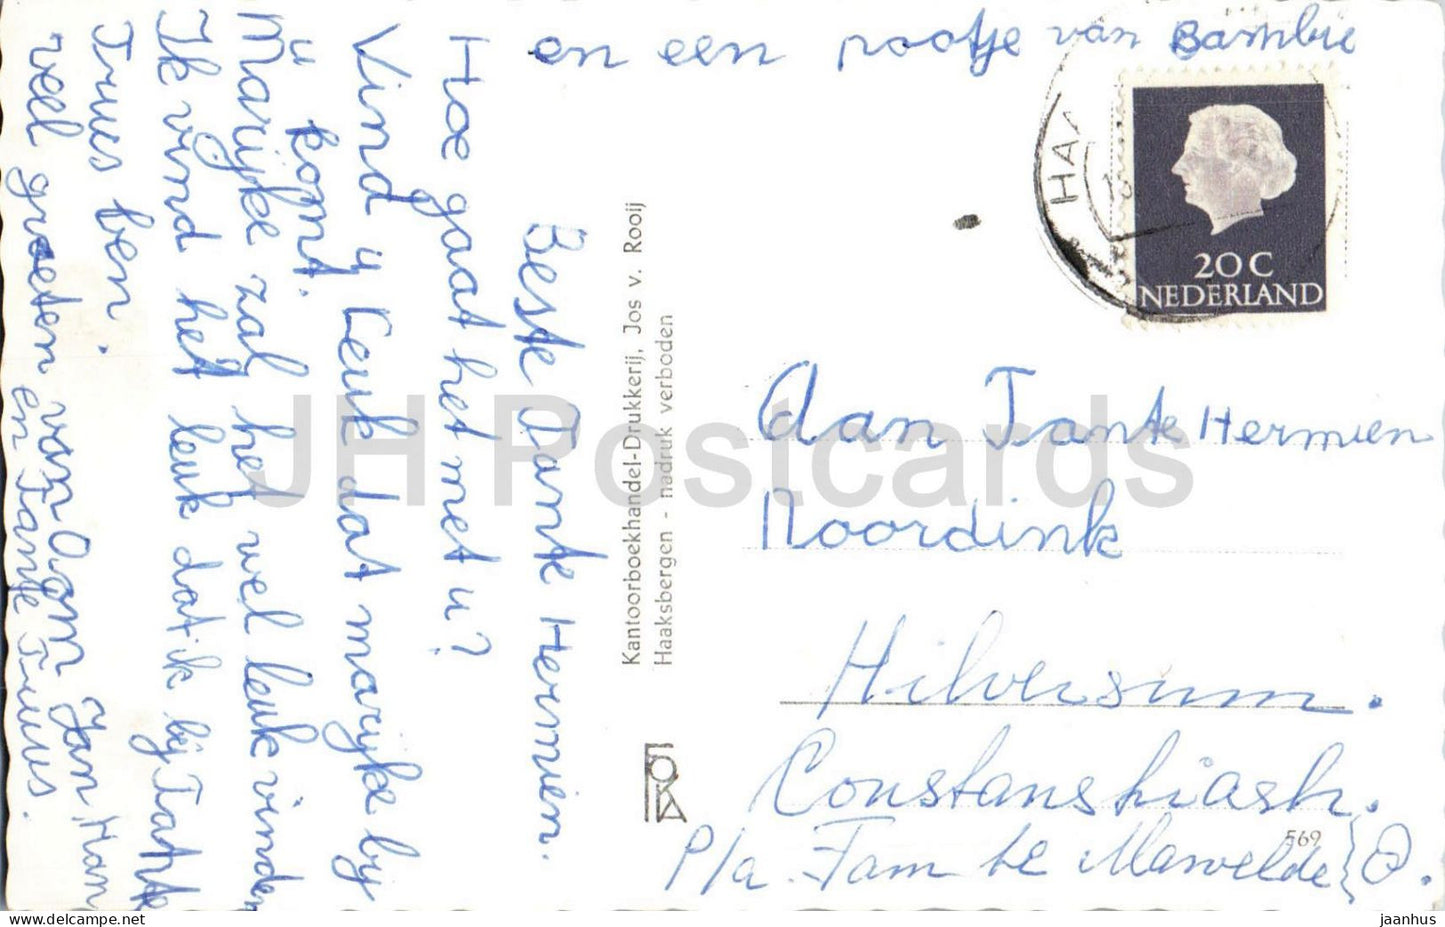 en een pootje van Bambie
Beste Tante Hermien.
Hoe gaat het met u?
Vind u Leuk dat marijke by
u komt.
Marijke zal het wel leuk vinden
Ik vind het leuk dat ik bij Tante
Truus ben.
veel groeten van Oom Jan, Han
en Tante Truus.
Kantoorboekhandel-Drukkerij, Jos v. Rooij
Haaksbergen - nadruk verboden
FOKA
HA
20 C
NEDERLAND
Aan Tante Hermien
Noordink
Hilversum.
p/a. Fam te Marvelde
569
JH Postcards
jaanhus.com